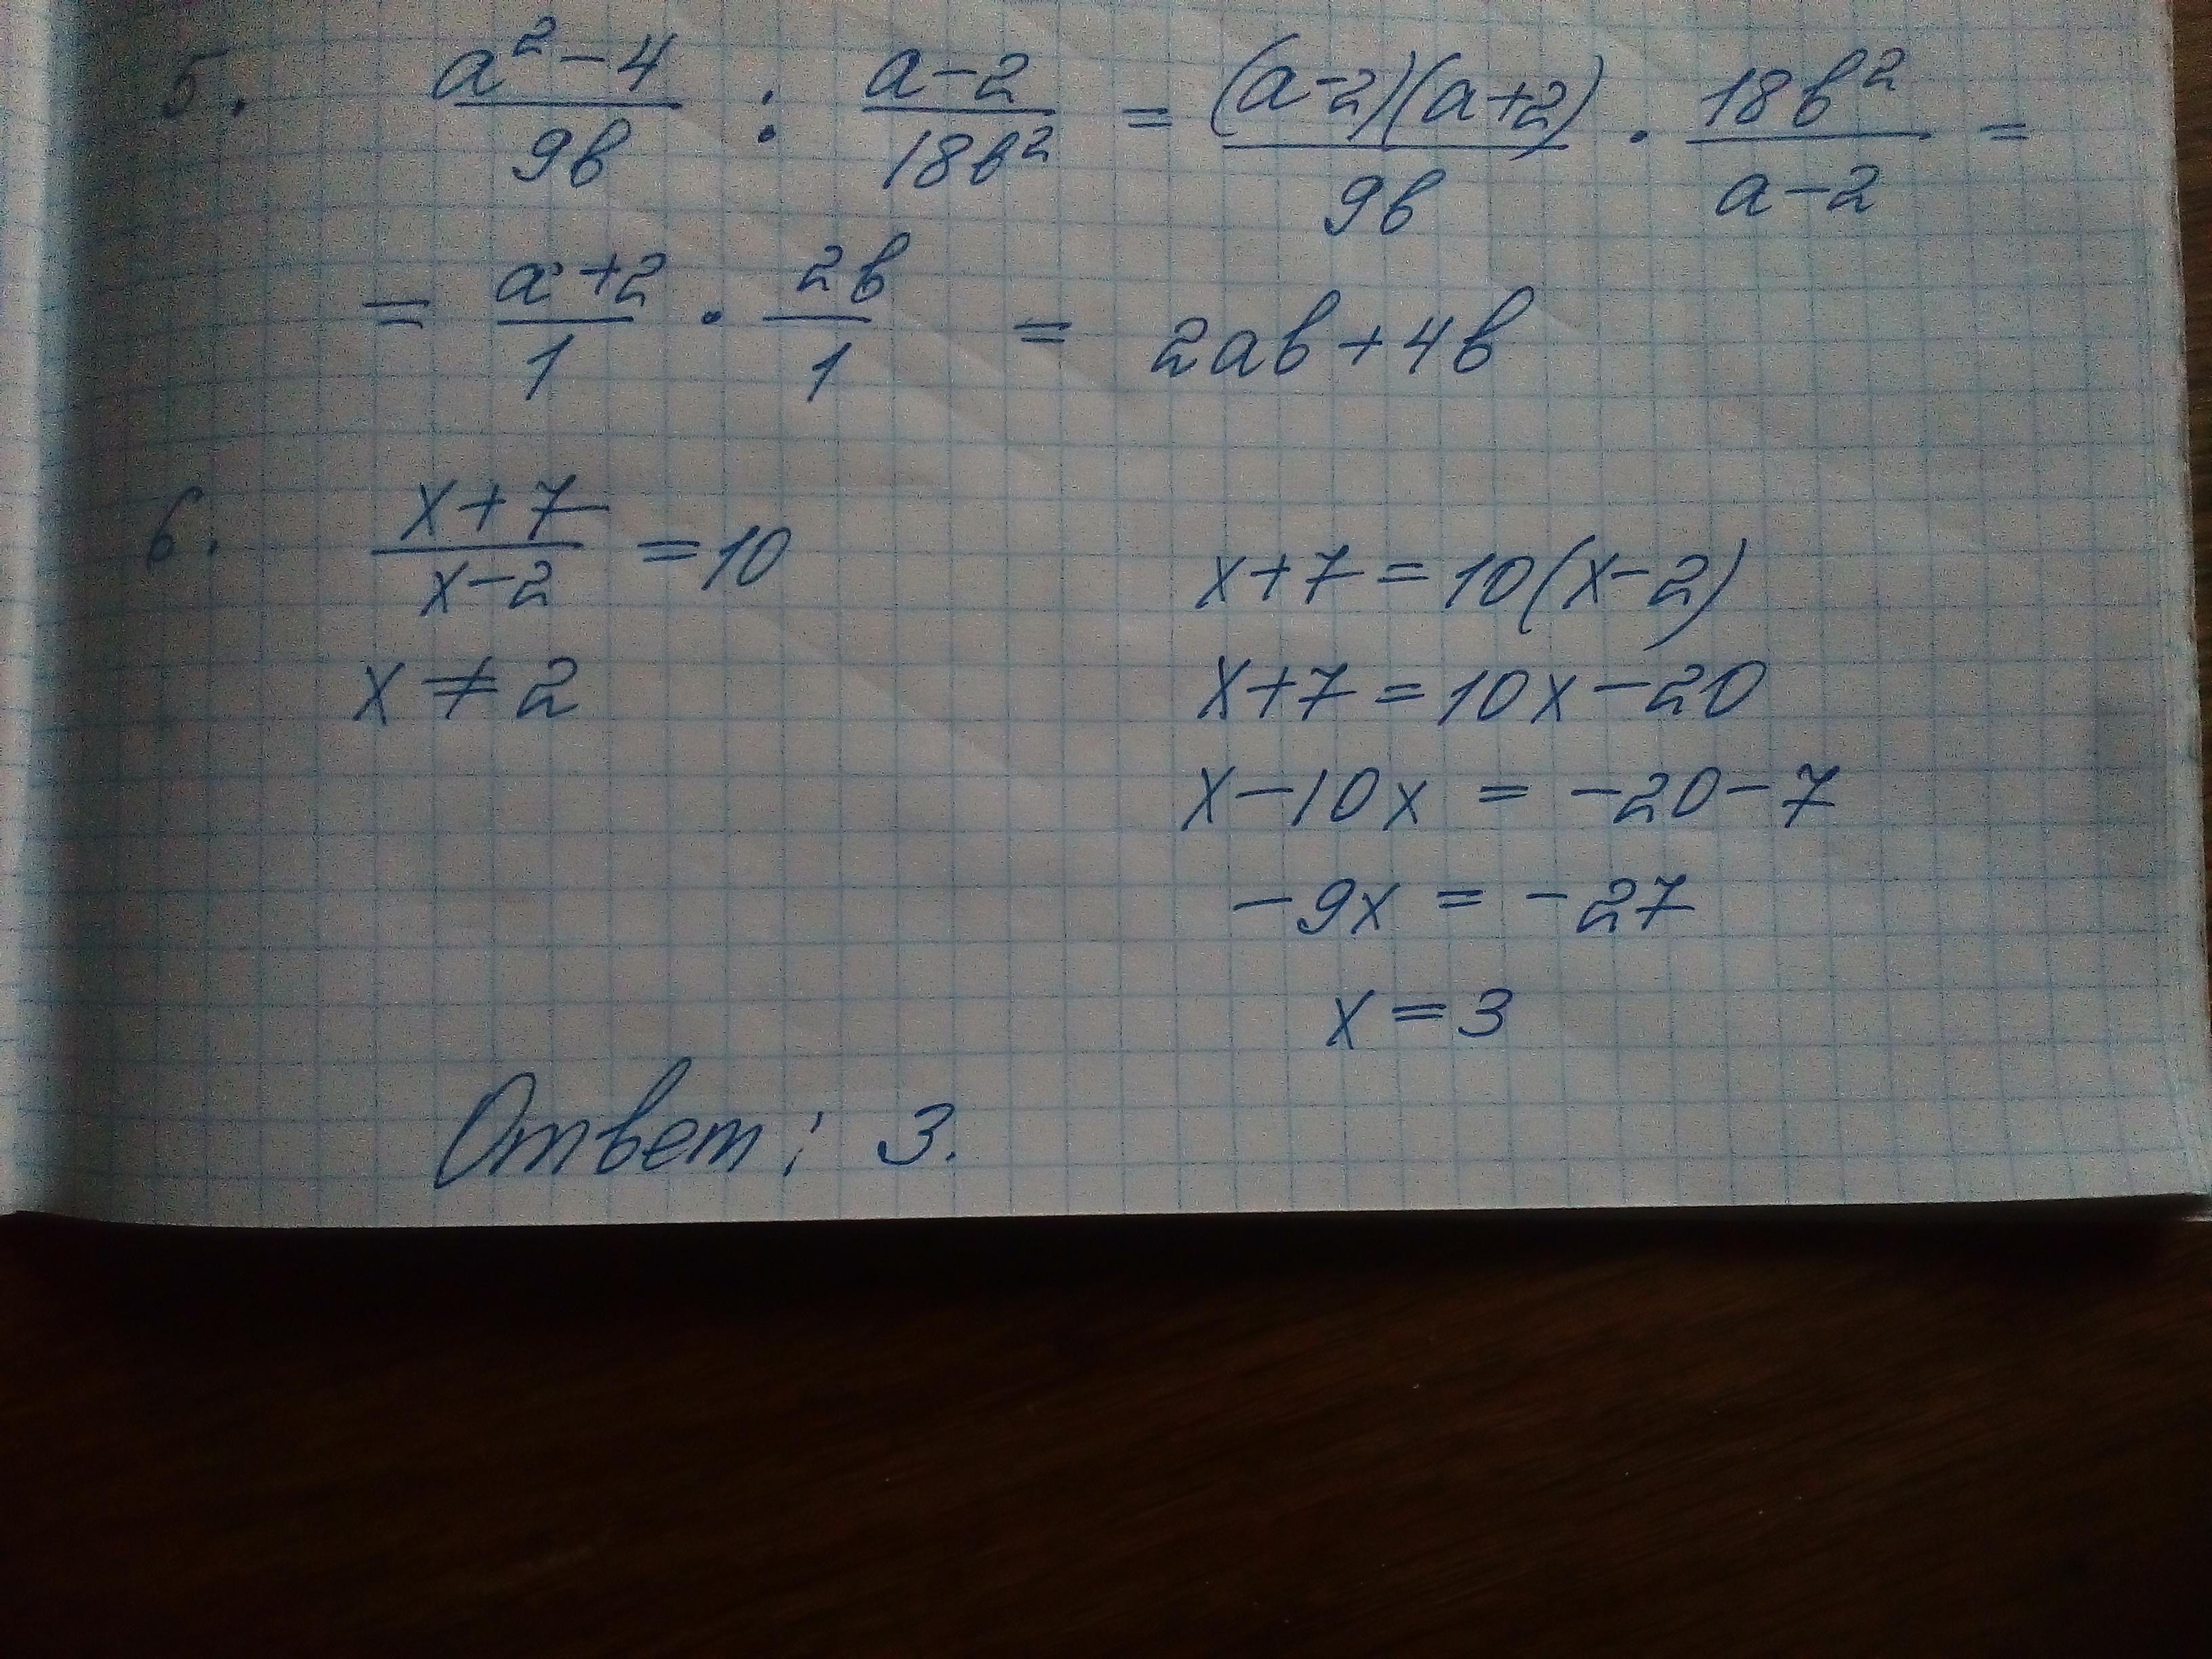 5. (a² - 4)/(9b) : (a - 2)/(18b²) = ((a - 2)(a + 2))/(9b) · (18b²)/(a - 2) =
= (a + 2)/1 · (2b)/1 = 2ab + 4b
6. (x + 7)/(x - 2) = 10
x ≠ 2
x + 7 = 10(x - 2)
x + 7 = 10x - 20
x - 10x = -20 - 7
-9x = -27
x = 3
Ответ: 3.